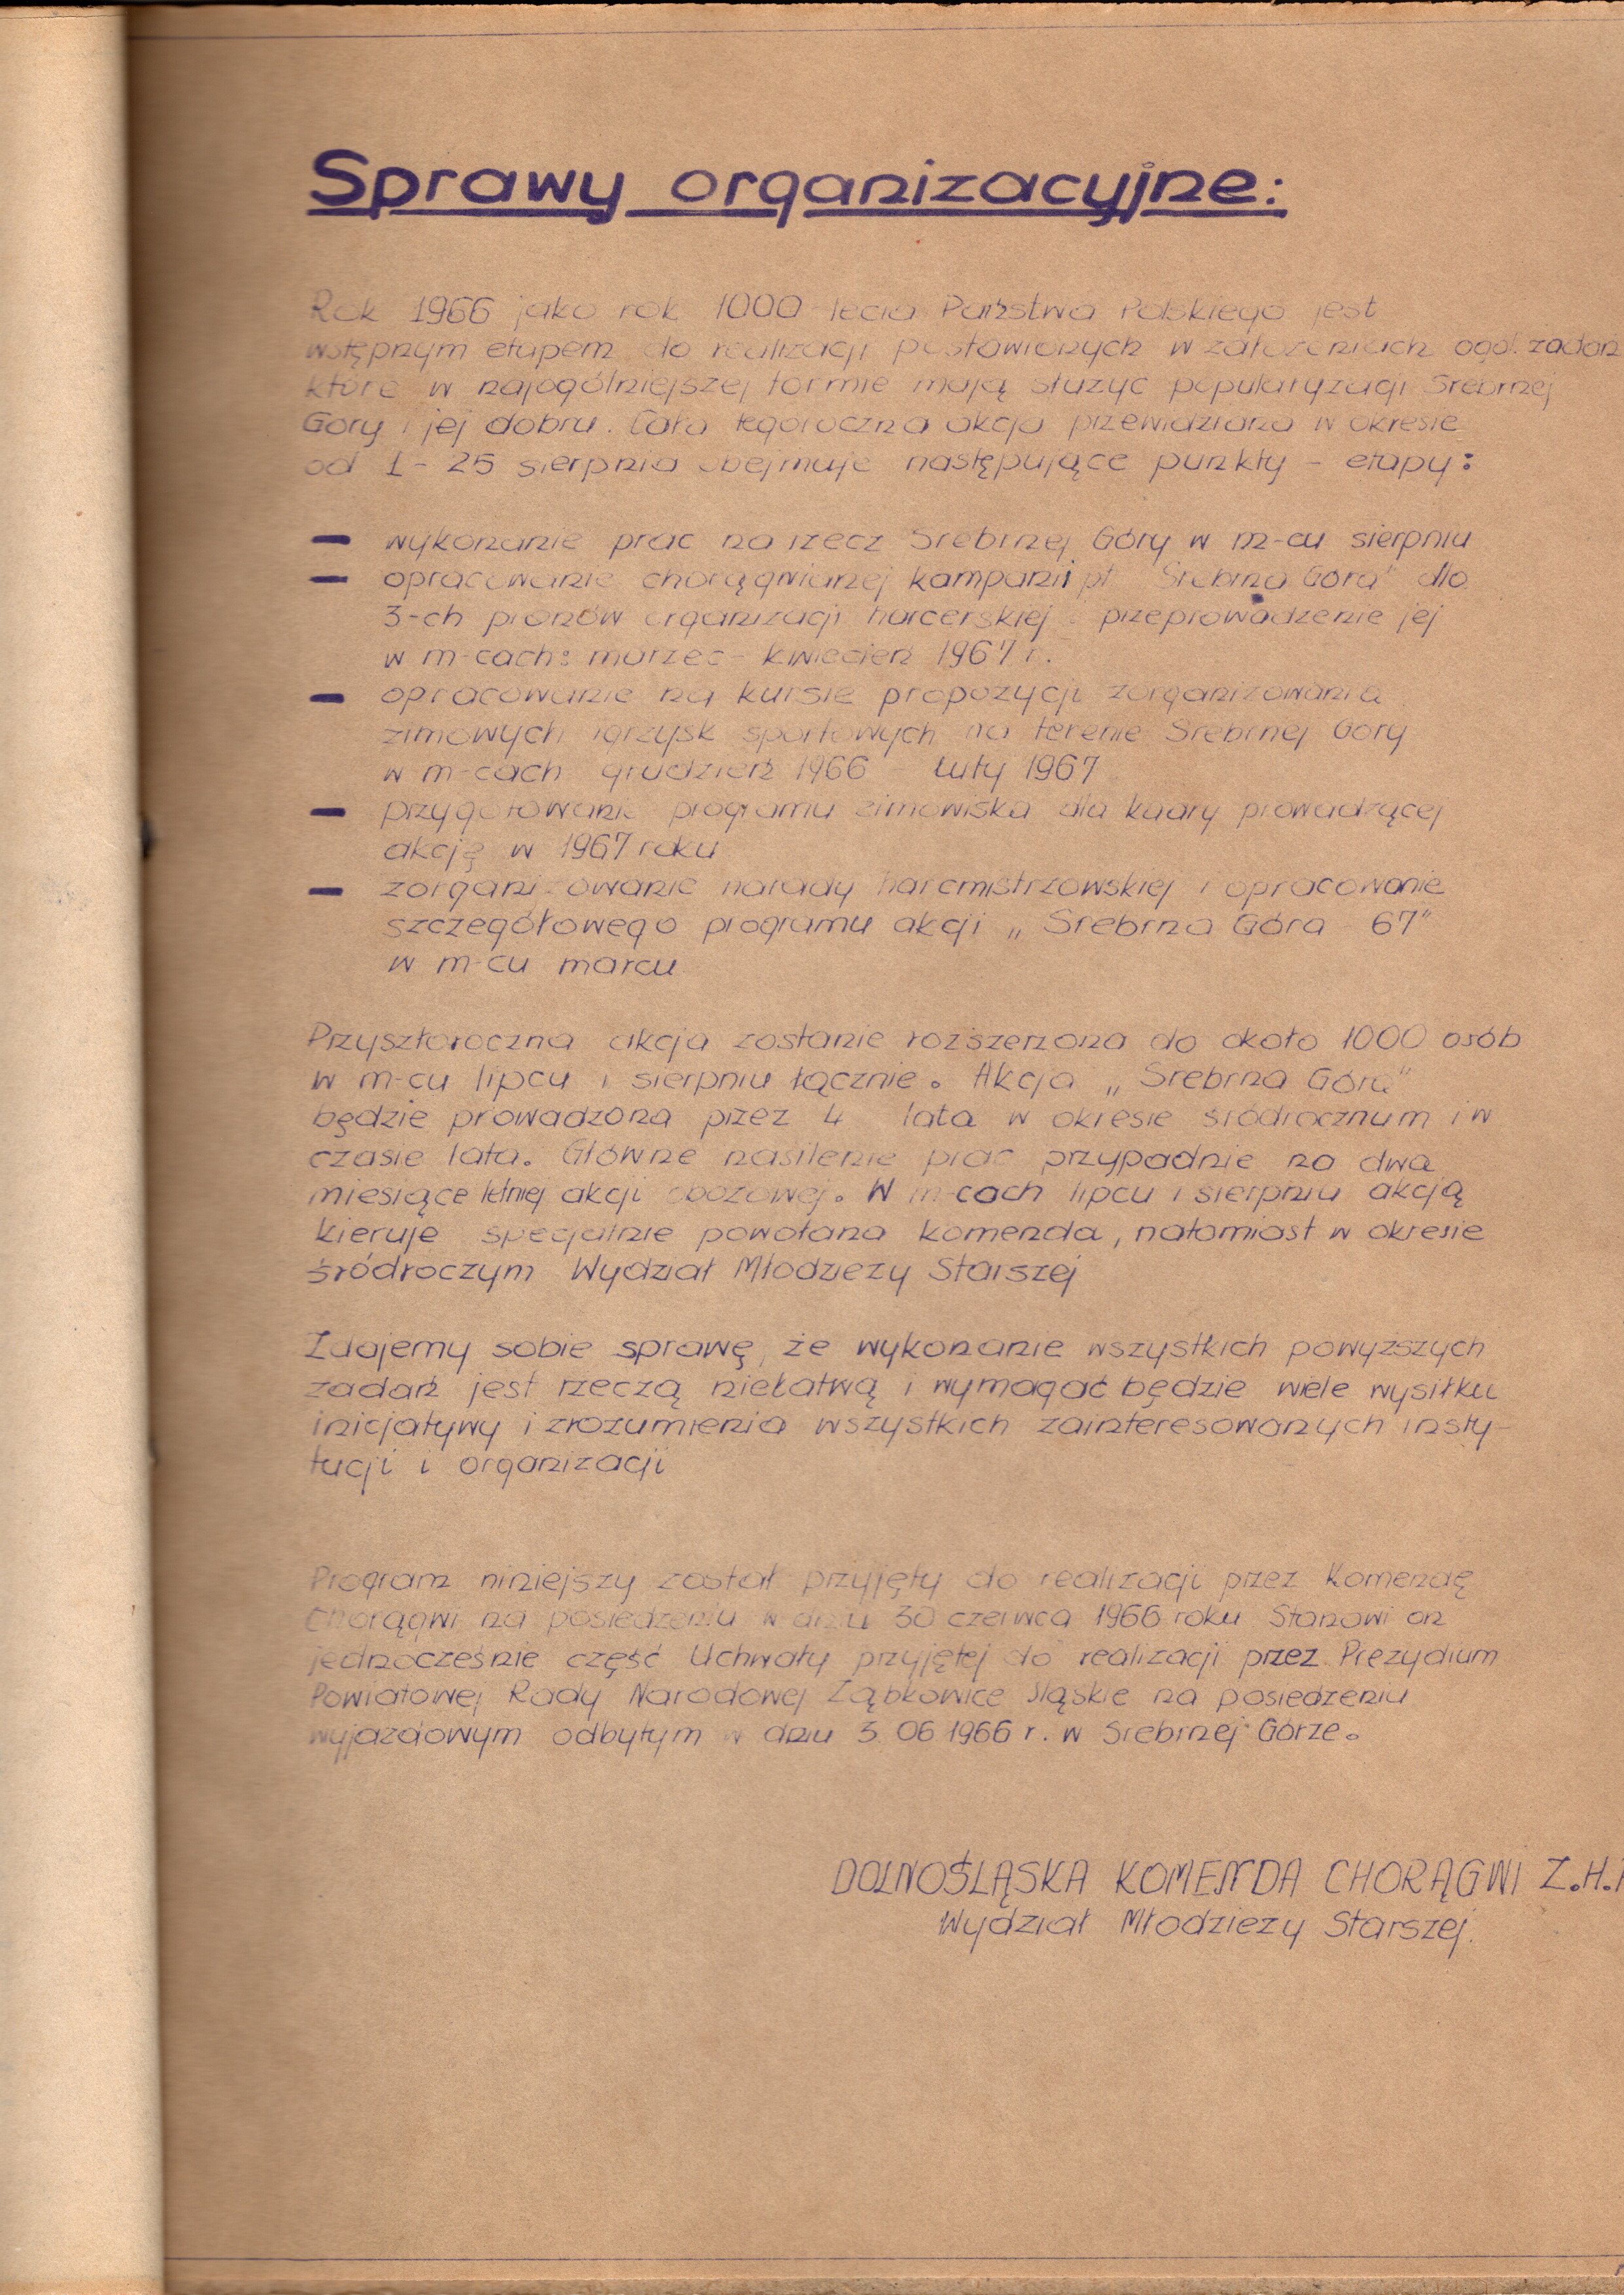 Sprawy organizacyjne:
Rok 1966 jako rok 1000-lecia Państwa Polskiego jest
wstępnym etapem do realizacji postawionych w założeniach ogól. zadań
które w najogólniejszej formie mają służyć popularyzacji Srebrnej
Góry i jej dobru. Cała tegoroczna akcja przewidziana w okresie
od 1 - 25 sierpnia obejmuje następujące punkty - etapy:
– wykonanie prac na rzecz Srebrnej Góry w m-cu sierpniu
– opracowanie chorągwianej kampanii pt "Srebrna Góra" dla
3-ch pionów organizacji harcerskiej i przeprowadzenie jej
w m-cach: marzec - kwiecień 1967 r.
– opracowanie na kursie propozycji zorganizowania
zimowych igrzysk sportowych na terenie Srebrnej Góry
w m-cach grudzień 1966 - luty 1967
– przygotowanie programu zimowiska dla kadry prowadzącej
akcję w 1967 roku
– zorganizowanie narady harcmistrzowskiej i opracowanie
szczegółowego programu akcji „Srebrna Góra 67"
w m-cu marcu
Przyszłoroczna akcja zostanie rozszerzona do około 1000 osób
w m-cu lipcu i sierpniu łącznie. Akcja „Srebrna Góra"
będzie prowadzona przez 4 lata w okresie śródrocznum i w
czasie lata. Główne nasilenie prac przypadnie na dwa
miesiące letniej akcji obozowej. W m-cach lipcu i sierpniu akcją
kieruje specjalnie powołana komenda, natomiast w okresie
śródroczym Wydział Młodzieży Starszej
Zdajemy sobie sprawę, że wykonanie wszystkich powyższych
zadań jest rzeczą niełatwą i wymagać będzie wiele wysiłku
inicjatywy i zrozumienia wszystkich zainteresowanych insty-
tucji i organizacji
Program niniejszy został przyjęty do realizacji przez Komendę
Chorągwi na posiedzeniu w dniu 30 czerwca 1966 roku Stanowi on
jednocześnie część Uchwały przyjętej do realizacji przez Prezydium
Powiatowej Rady Narodowej Ząbkowice Śląskie na posiedzeniu
wyjazdowym odbytym w dniu 3 06 1966 r. w Srebrnej Górze.
DOLNOŚLĄSKA KOMENDA CHORĄGWI Z.H.
Wydział Młodzieży Starszej.